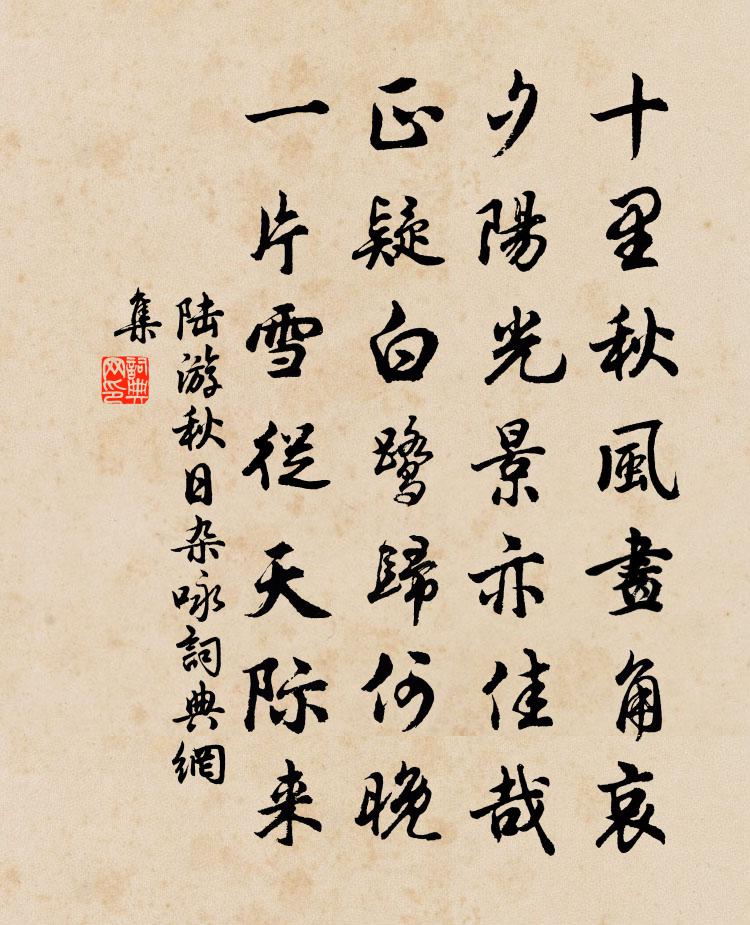 十里秋風畫角哀
夕陽光景亦佳哉
正疑白鷺歸何晚
一片雪從天际来
陆游秋日杂咏詞典網
集
詞典
网印